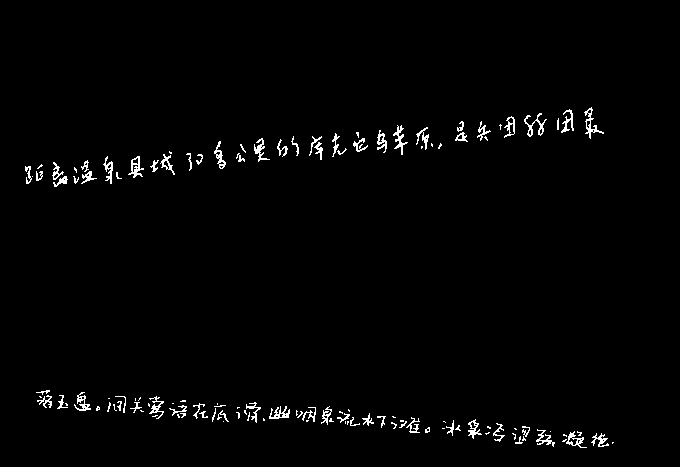 距离温泉县城30多公里的库克它乌草原,是兵团88团最
落玉盘。间关莺语花底滑,幽咽泉流水下滩。冰泉冷涩弦凝绝